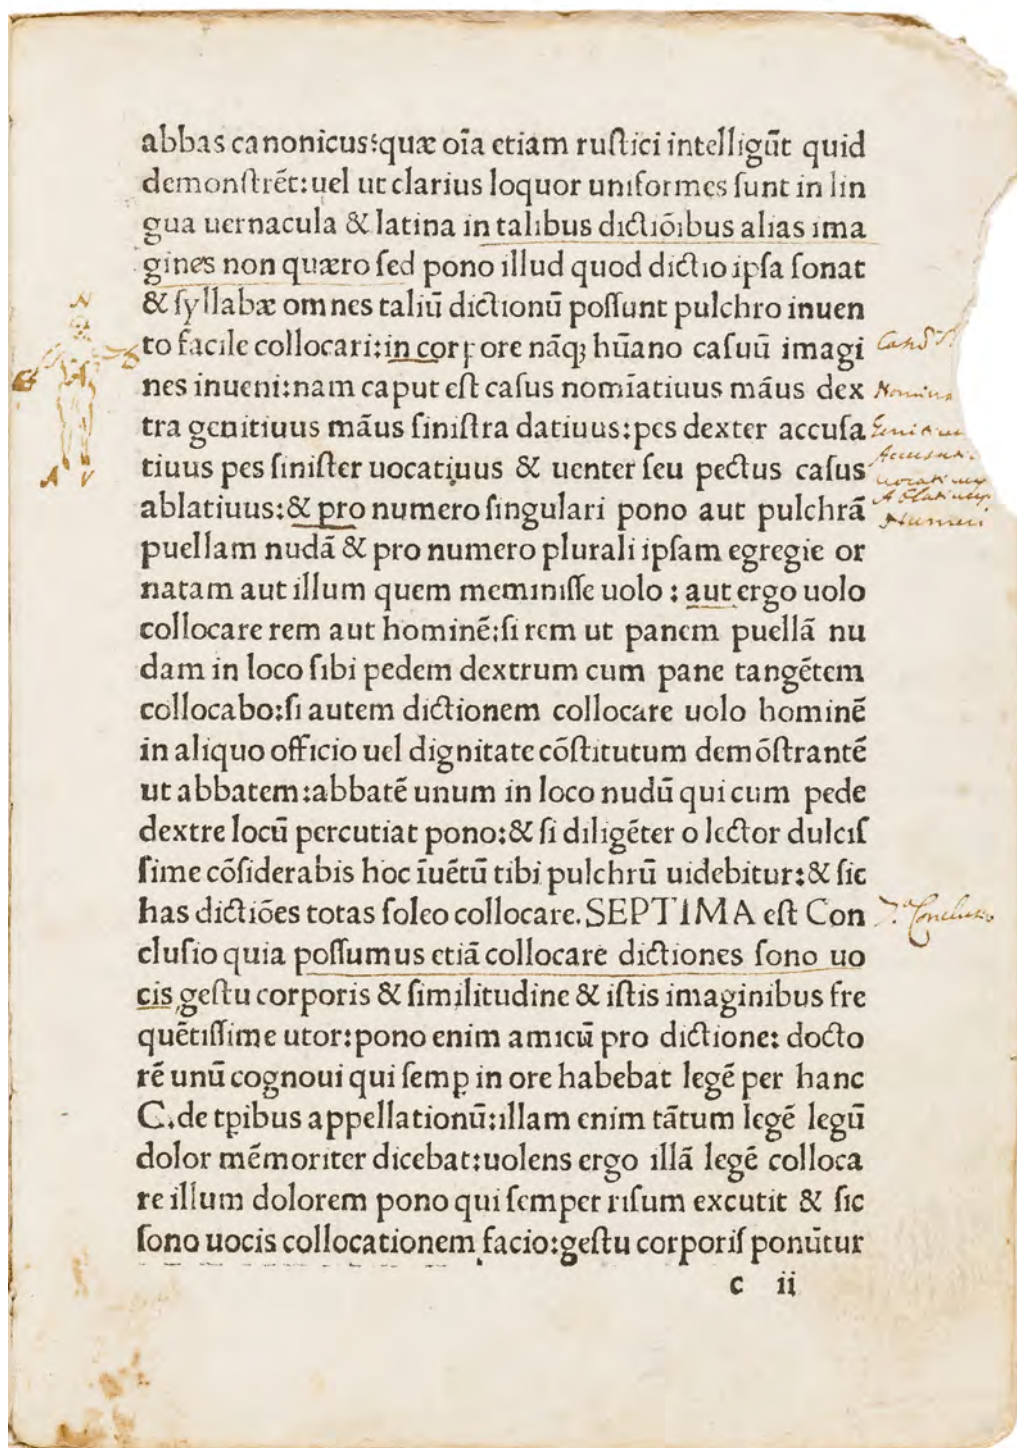 abbas canonicus:quæ oīa etiam ruſtici intelligūt quid
demonſtrēt:uel ut clarius loquor uniformes ſunt in lin
gua uernacula & latina in talibus dictiōibus alias ima
gines non quæro ſed pono illud quod dictio ipſa ſonat
& ſyllabæ omnes taliū dictionū poſſunt pulchro inuen
to facile collocari:in corpore nāq; hūano caſuū imagi
nes inueni:nam caput eſt caſus nomīatiuus māus dex
tra genitiuus māus ſiniſtra datiuus:pes dexter accuſa
tiuus pes ſiniſter uocatiuus & uenter ſeu pectus caſus
ablatiuus:& pro numero ſingulari pono aut pulchrā
puellam nudā & pro numero plurali ipſam egregie or
natam aut illum quem meminiſſe uolo : aut ergo uolo
collocare rem aut hominē:ſi rem ut panem puellā nu
dam in loco ſibi pedem dextrum cum pane tangētem
collocabo:ſi autem dictionem collocare uolo hominē
in aliquo officio uel dignitate cōſtitutum demōſtrantē
ut abbatem:abbatē unum in loco nudū qui cum pede
dextre locū percutiat pono:& ſi diligēter o lector dulciſ
ſime cōſiderabis hoc īuētū tibi pulchrū uidebitur:& ſic
has dictiōes totas ſoleo collocare.SEPTIMA eſt Con
cluſio quia poſſumus etiā collocare dictiones ſono uo
cis geſtu corporis & ſimilitudine & iſtis imaginibus fre
quētiſſime utor:pono enim amicū pro dictione: docto
rē unū cognoui qui ſemp̲ in ore habebat legē per hanc
C.de tp̄ibus appellationū:illam enim tātum legē legū
dolor mēmoriter dicebat:uolens ergo illā legē colloca
re illum dolorem pono qui ſemper riſum excutit & ſic
ſono uocis collocationem facio:geſtu corporiſ ponūtur
c ii
N
G
D
A V
Nomina
Accusati
uocatiuus
Ablatiuus
Numeri
7.a Conclusio